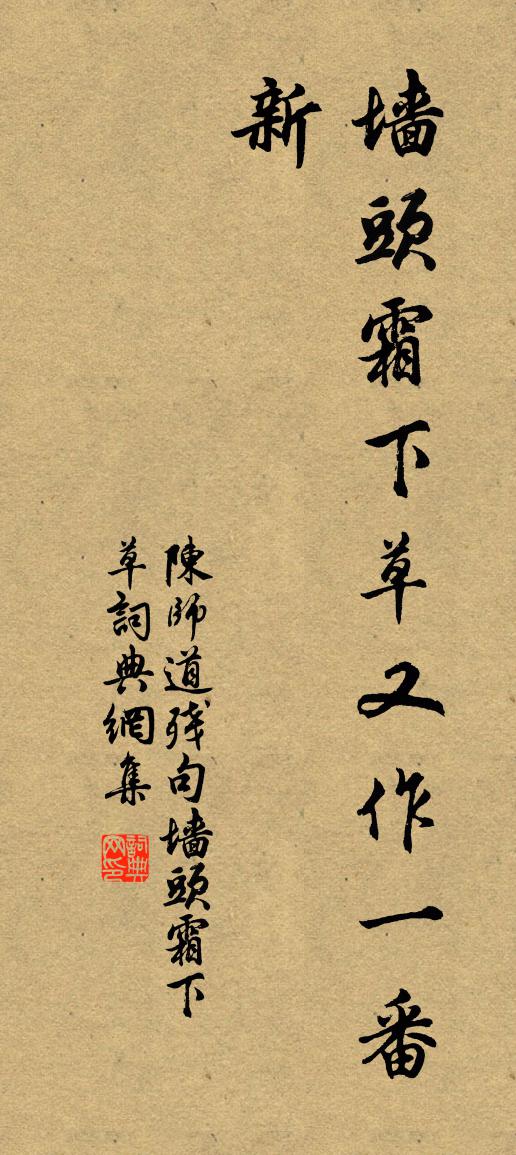 墙頭霜下草又作一番
新
陳師道残句墙頭霜下
草詞典網集
詞典
网印